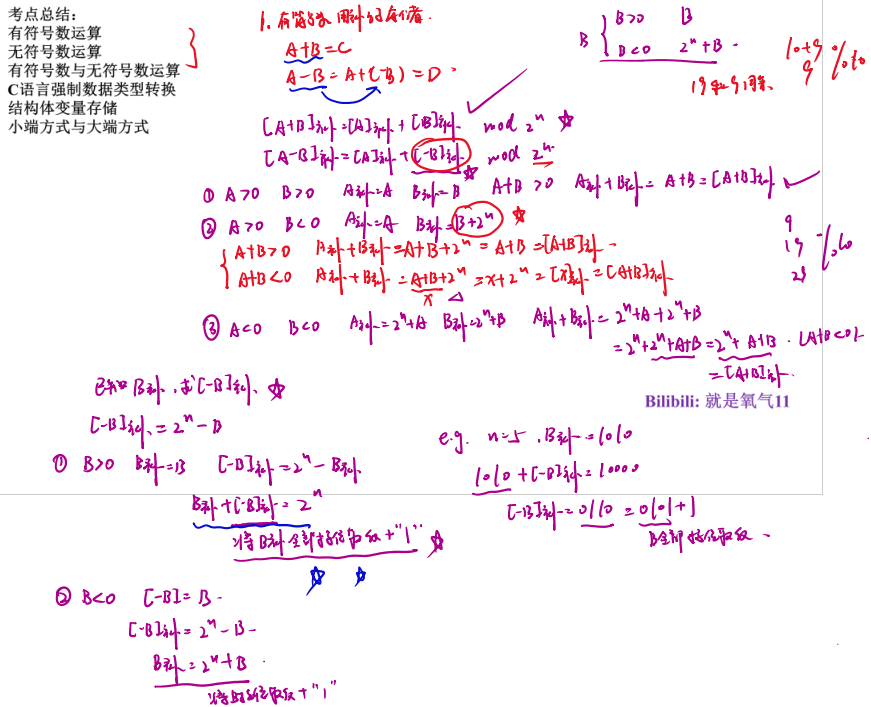 考点总结：
有符号数运算
无符号数运算
有符号数与无符号数运算
C语言强制数据类型转换
结构体变量存储
小端方式与大端方式
1. 有符号数 用补码存储.
A+B=C
A-B=A+(-B)=D.
B { B>0 B
B<0 2ⁿ+B.
10+9 %10
9
19和9同余.
[A+B]补=[A]补+[B]补 mod 2ⁿ ☆
[A-B]补=[A]补+[-B]补 mod 2ⁿ
① A>0 B>0 A补=A B补=B A+B>0 A补+B补=A+B=[A+B]补
② A>0 B<0 A补=A B补=B+2ⁿ ☆
A+B>0 A补+B补=A+B+2ⁿ=A+B=[A+B]补
A+B<0 A补+B补=A+B+2ⁿ=x+2ⁿ=[x]补=[A+B]补
x
9
19
29 %10
③ A<0 B<0 A补=2ⁿ+A B补=2ⁿ+B A补+B补=2ⁿ+A+2ⁿ+B
=2ⁿ+2ⁿ+A+B=2ⁿ+A+B. (A+B<0)
=[A+B]补.
Bilibili: 就是氧气11
已知B补, 求[-B]补 ☆
[-B]补=2ⁿ-B
① B>0 B补=B [-B]补=2ⁿ-B补
B补+[-B]补=2ⁿ
将B补全部按位取反+"1" ☆
e.g. n=5, B补=1010
1010+[-B]补=10000
[-B]补=0110=0101+1
B全部按位取反
② B<0 [-B]=B.
[-B]补=2ⁿ-B
B补=2ⁿ+B
将B按位取反+"1"